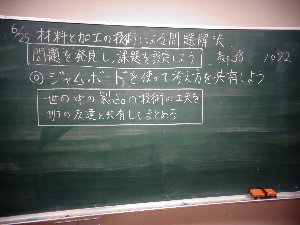 6/25 材料と加工の技術による問題解決
問題を発見し、課題を設定しよう 教科書 P.92
◎ジャムボードを使って考え方を共有しよう
世の中の製品の技術の工夫を
班の友達と共有してまとめる